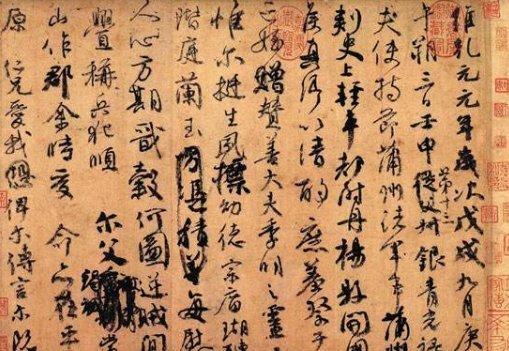 維乾元元年歲次戊戌九月庚
午朔三日壬申第十三叔銀青光祿
夫使持節蒲州諸軍事蒲州
刺史上輕車都尉丹楊縣開國
侯真卿以清酌庶羞祭于
亡姪贈贊善大夫季明之靈
惟爾挺生夙標幼德宗廟瑚
階庭蘭玉方憑積善每慰
人心方期戩穀何圖逆賊閒
釁稱兵犯順爾父竭誠常
山作郡余時受命亦在平
原仁兄愛我恐俾爾傳言爾既